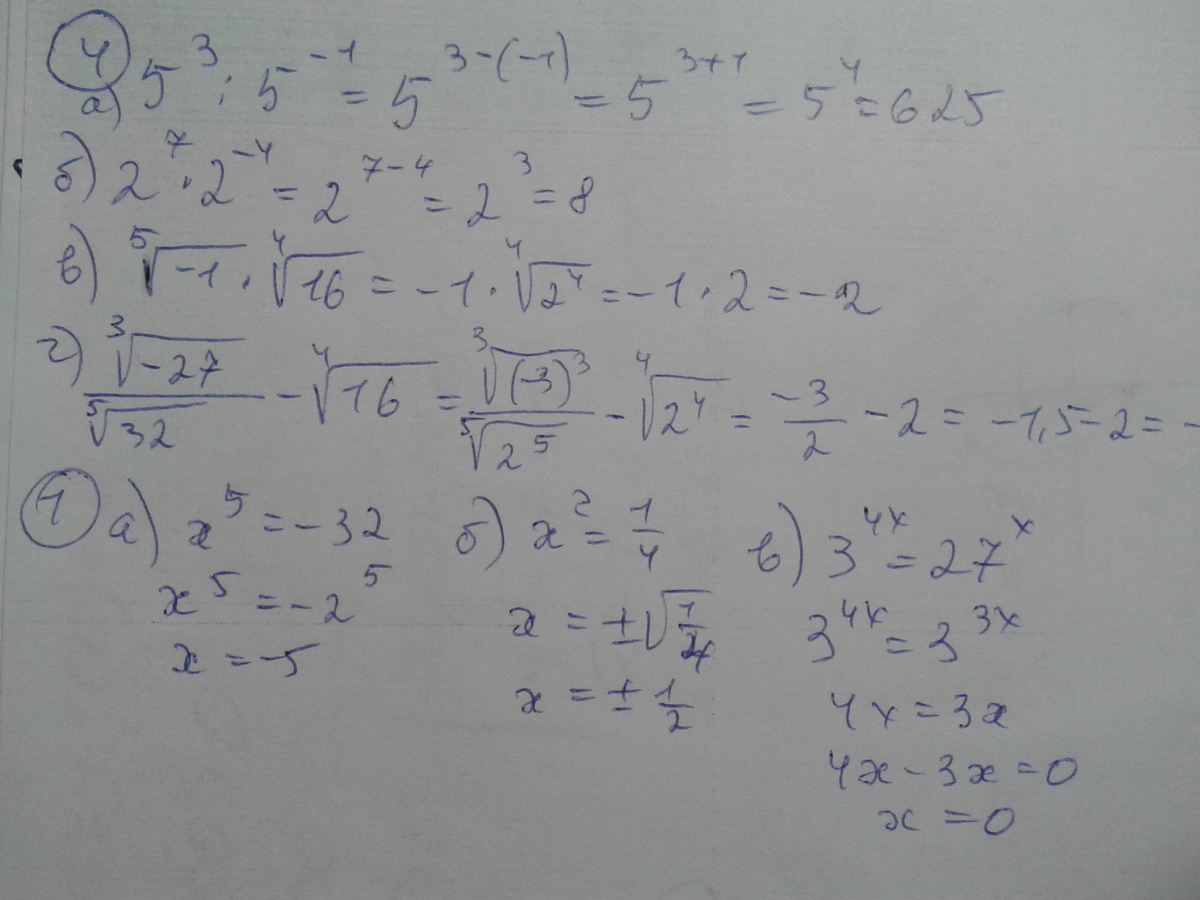 4
а) 5³ : 5⁻¹ = 5³⁻⁽⁻¹⁾ = 5³⁺¹ = 5⁴ = 625
б) 2⁷ · 2⁻⁴ = 2⁷⁻⁴ = 2³ = 8
в) ⁵√-1 · ⁴√16 = -1 · ⁴√2⁴ = -1 · 2 = -2
г) ³√-27 / ⁵√32 - ⁴√16 = ³√(-3)³ / ⁵√2⁵ - ⁴√2⁴ = -3/2 - 2 = -1,5 - 2 = -
1 а) x⁵ = -32 б) x² = 1/4 в) 3⁴ˣ = 27ˣ
x⁵ = -2⁵ x = ±√1/4 3⁴ˣ = 3³ˣ
x = -5 x = ± 1/2 4x = 3x
4x - 3x = 0
x = 0